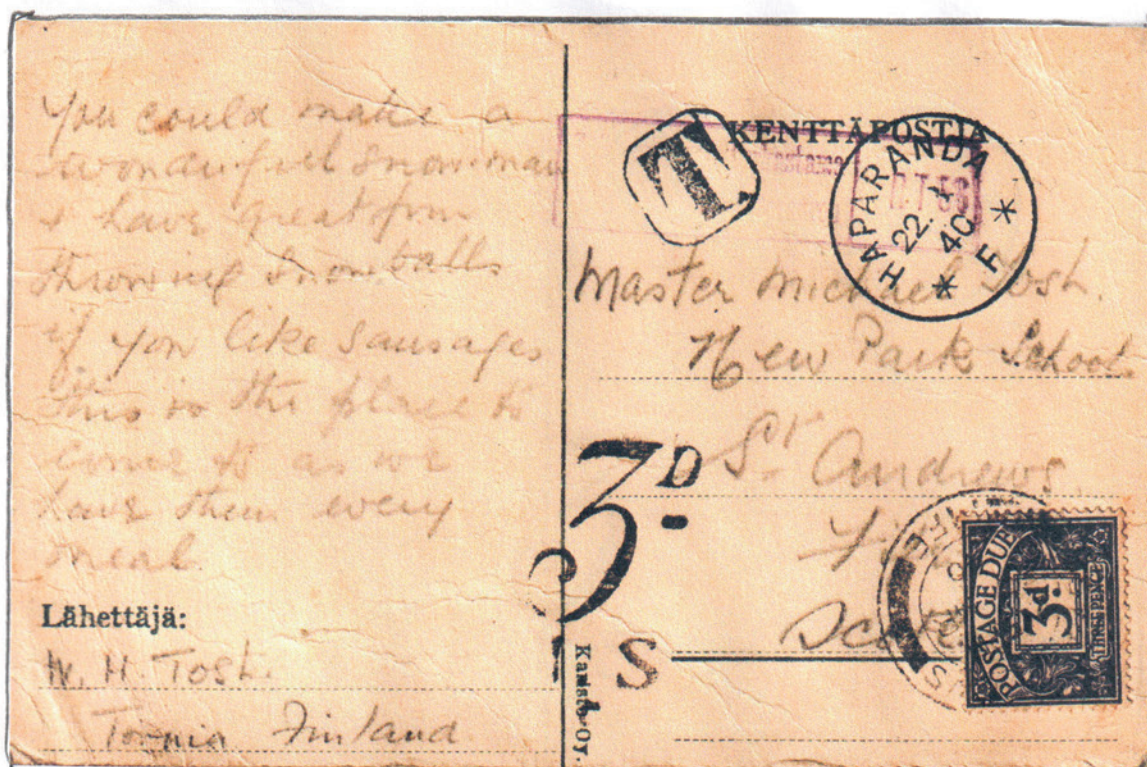 you could make a
wonderful snowman
& have great fun
throwing snowballs
if you like sausages
this is the place to
come to as we
have them every
meal
Lähettäjä:
W. H. Tosh.
Tornia Finland
KENTTÄPOSTIA
T
HAPARANDA
22. 40
* F *
Master Michael Tosh.
New Park School
St Andrews.
3D
S
Kaisto Oy.
FIFE
POSTAGE DUE
3d
THREE PENCE